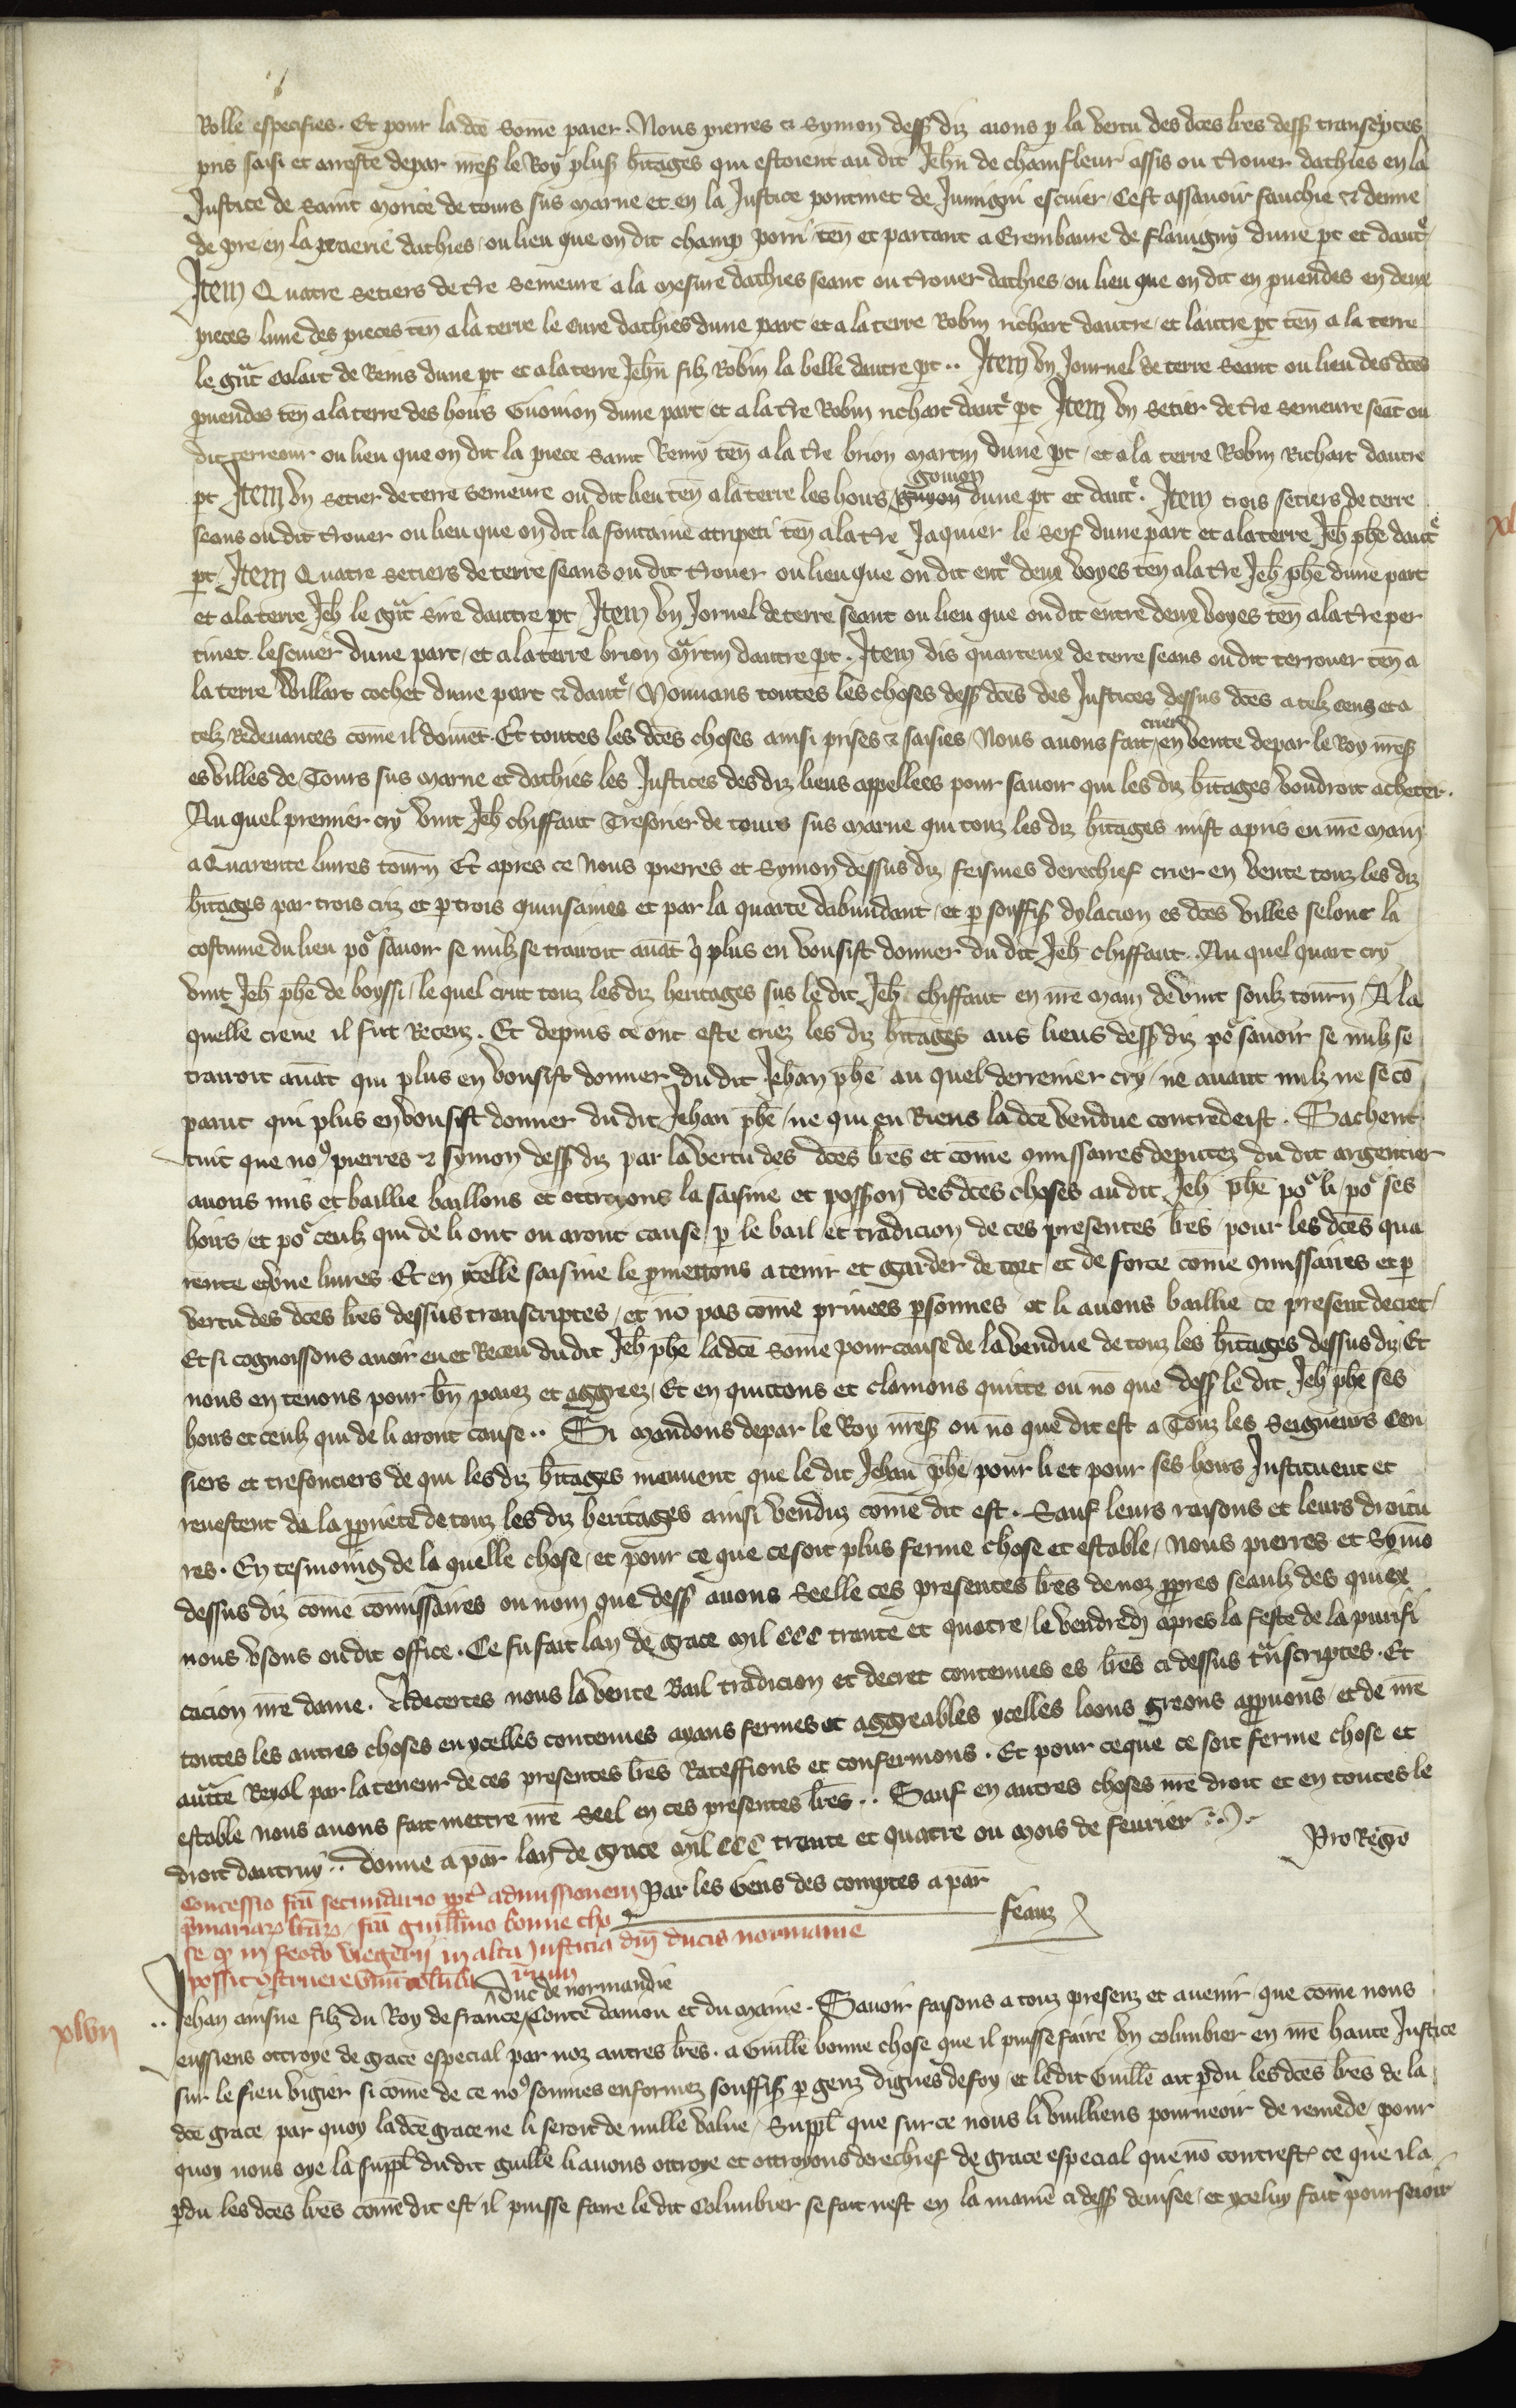 Rolle especifies. Et pour la dce some paier. Nous pierres et Symon dess diz auons p la vertu des dces lres dess transcptes
pris saisi et arreste depar nress le Roy pluss hitages qui estoient au dit Jehn de chamfleur assis ou trouer dathies en la
Justice de saint Morice de tours sus marne et en la Justice pontinet de Jumigni escuier, Cest assauoir fauchie et demie
de pre en la praerie dathies, ou lieu que on dit champ porri ten et partant a Erembaure de flauigny dune pt et daut
Item Quatre setiers de tre semeure a la mesure dathies seant ou trouer dathies, ou lieu que on dit en puendes en deux
pieces, lune des pieces ten a la terre le Cure dathies dune part, et a la terre Robin richart dautre, et lautre pt ten a la terre
le gut Colart de Reins dune pt et a la terre Jehn filz Robin la belle dautre pt .. Item vn Journel de terre seant ou lieu des dces
puendes ten a la terre des hoirs Guonion dune part et a la tre Robin richart daut pt Item vn setier de tre semeure seat ou
dit terreour ou lieu que on dit la piece saint Remy ten a la tre brion martin dune pt, et a la terre Robin Richart dautre
pt Item vn setier de terre semeure ou dit lieu ten a la terre les hoirs guyon gonion dune pt et daut. Item trois setiers de terre
seans ou dit trouer ou lieu que on dit la fontaine atripeti ten a la tre Jaquier le Serf dune part et a la terre Jeh phe daut
pt, Item Quatre setiers de terre seans ou dit trouer ou lieu que on dit ent deux voyes ten a la tre Jeh phe dune part
et a la terre Jeh le gut sire dautre pt, Item vn Jornel de terre seant ou lieu que on dit entre deux voyes ten a la tre per
tinet lescuier dune part, et a la terre brion martin dautre pt. Item dis quarteux de terre seans ou dit terrouer ten a
la terre Willart cochet dune part et daut, Mouuans toutes les choses dess dces des Justices dessus dces a telz cens et a
telz Redeuances come il doiuet. Et toutes les dces choses ainsi prises et saisies, Nous auons fait crier en vente depar le Roy nress
es villes de Tours sus marne et dathies les Justices des diz lieus appellees pour sauoir qui les diz hitages voudroit acheter.
Au quel premier cry vint Jeh chiffaut Tresorier de tours sus marne qui touz les diz hitages mist apris en nre main
a Quarente liures tourn Et apres ce Nous pierres et Symon dessus diz feismes derechief crier en vente touz les diz
hitages par trois criz et p trois quinsaines et par la quarte dabundant, et p souffiss dylacion es dces villes selonc la
costume du lieu po sauoir se nulz se trairoit auat q plus en vousist donner du dit Jeh chiffaut. Au quel quart cry
vint Jeh phe de boyssi, le quel crut touz les diz heritages sus le dit Jeh chiffaut en nre main de vint soulz tourn, A la
quelle creue il fut Receuz. Et depuis ce ont este criez les diz hitages aus lieus dess diz po sauoir se nulz se
trairoit auat qui plus en vousist donner du dit Jehan phe au quel derrenier cry, ne auant nulz ne se co
parut qui plus en vousist donner du dit Jehan phe, ne qui en Riens la dce vendue contredeist. Sachent
tuit que no9 pierres et symon dess diz par la vertu des dces lres et come 9missaires deputez du dit argentier
auons mis et baillie baillons et ottroyons la saisine et posson des dces choses au dit Jeh phe po li, po ses
hoirs, et po ceulz qui de li ont ou aront cause, p le bail et tradicion de ces presentes lres pour les dces qua
rente et vne liures Et en ycelle saisine le pmettons a tenir et garder de tort et de force come 9missaires et p
vertu des dces lres dessus transcriptes, et no pas come priuees psonnes et li auons baillie ce present decret,
Et si cognoissons auoir eu et Receu du dit Jeh phe la dce some pour cause de la vendue de touz les hitages dessus diz, Et
nous en tenons pour bn paiez et aggreez, Et en quittons et clamons quitte ou no que dess le dit Jeh phe ses
hoirs et ceulz qui de li aront cause .. Si mandons depar le Roy nress ou no que dit est a Touz les Seigneurs Cen
siers et tresfonciers de qui les diz hitages meuuent que le dit Jehan phe, pour li et pour ses hoirs Instituent et
reuestent de la ppriete de touz les diz heritages ainsi venduz come dit est. Sauf leurs raisons et leurs droitu
res. En tesmoing de la quelle chose, et pour ce que ce soit plus ferme chose et estable, Nous pierres et Symo
dessus diz come comissaires ou nom que dess auons Seelle ces presentes lres de noz ppres seaulz des quiex
nous vsons ou dit office. Ce fu fait lan de grace mil CCC trante et quatre, le vendredi apres la feste de la purifi
cacion nre dame. Adecertes nous la vente Bail tradicion et decret contenues es lres ci dessus transcriptes. Et
toutes les autres choses en ycelles contenues ayans fermes et aggreables ycelles loons greons appuons, et de nre
autte Royal par la teneur de ces presentes lres Rateffions et confermons. Et pour ce que ce soit ferme chose et
estable nous auons fait mettre nre Seel en ces presentes lres .. Sauf en autres choses nre droit et en toutes le
droit dautruy .. donne a par lan de grace mil CCC trante et quatre ou mois de feurier
Pro Rego
Par les Gens des comptes a par
feauz
Concessio fca secundario ppt admissionem
pmariar lrar, fca guillmo bonne cho
se q in feodo viegerii in alta Justicia dni ducis normanie
possit 9struere vnu colubr
xlvii
Jehan ainsne filz du Roy de france, duc de normandie Conte danjou et du Maine. Sauoir faisons a touz presenz et auenir, que come nous
eussiens ottroye de grace especial par noz autres lres. a Guille bonne chose que il puisse faire vn columbier en nre haute Justice
sur le fieu vigier si come de ce no9 sommes enformez souffiss p genz dignes de foy, et le dit Guille ait pdu les dces lres de la
dce grace, par quoy la dce grace ne li seroit de nulle value, Suppl que sur ce nous li vuilliens pourueoir de remede, pour
quoy nous oye la suppl du dit guille li auons ottroye et ottroyons derechief de grace especial que no contrest ce que il a
pdu les dces lres come dit est, il puisse faire le dit Columbier se fait nest en la maniere ci dess deuisee, et yceluy fait poursuir